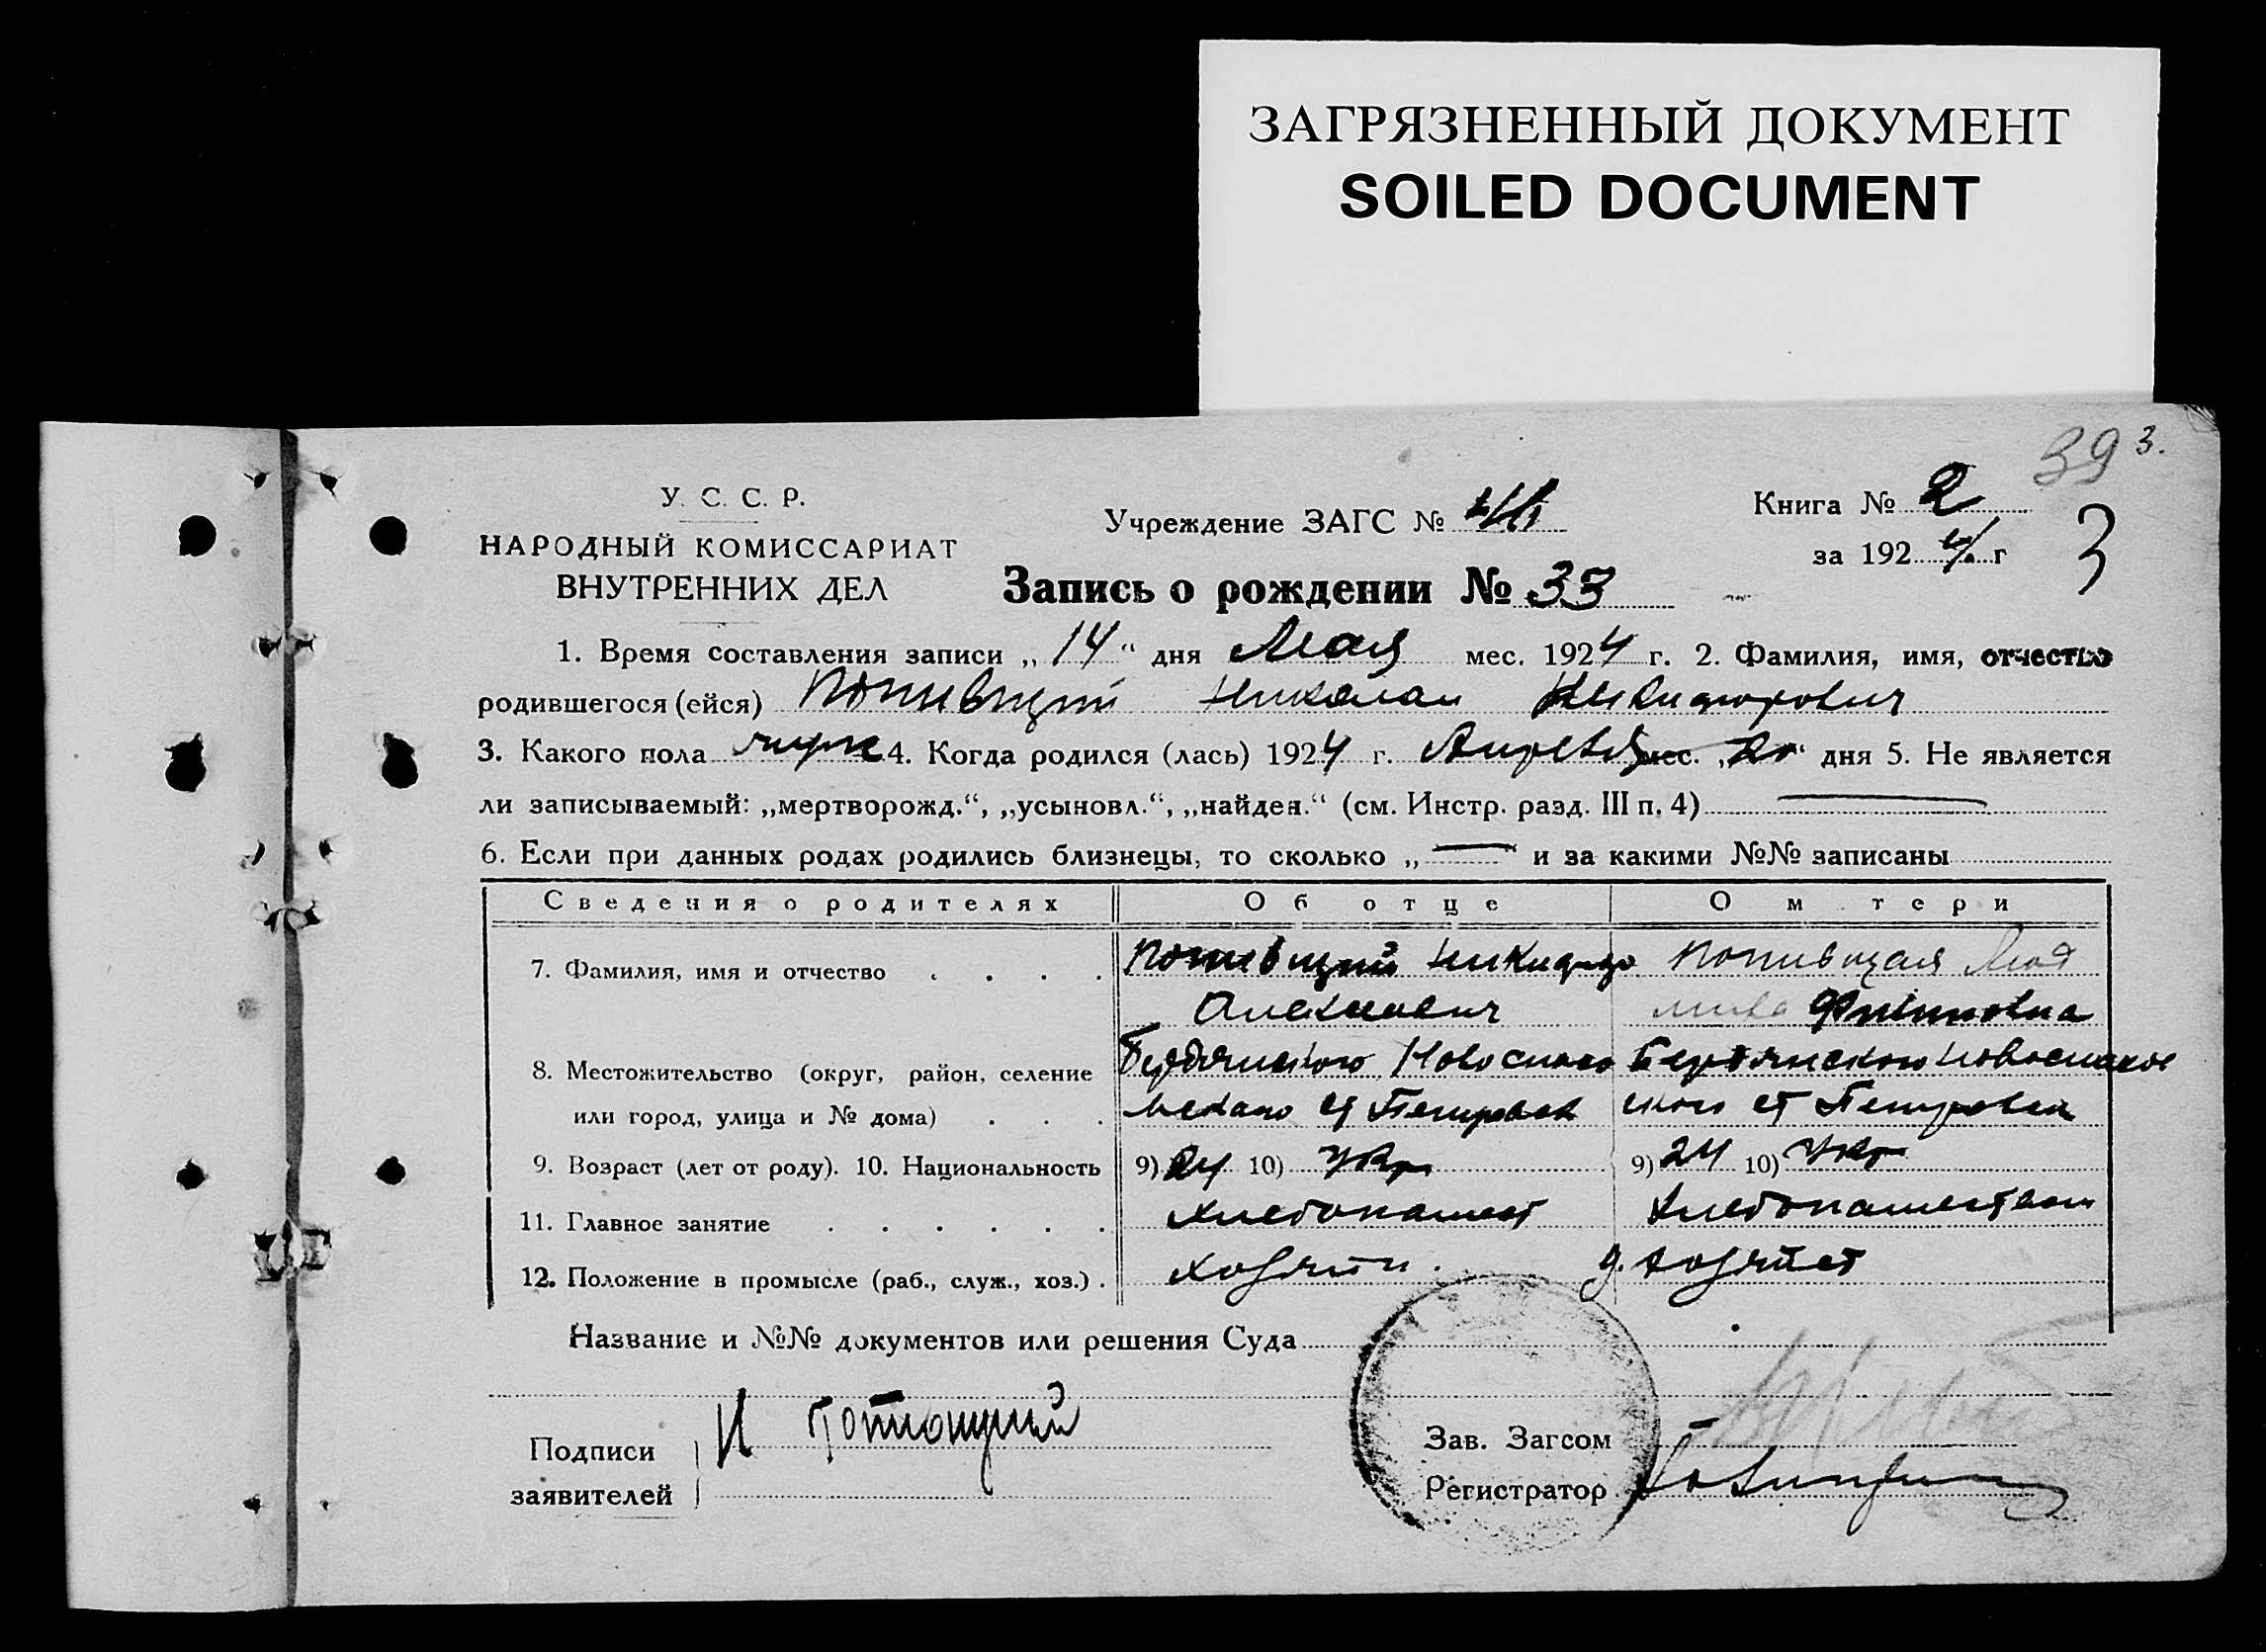 ЗАГРЯЗНЕННЫЙ ДОКУМЕНТ
SOILED DOCUMENT
39 3.
У. С. С. Р.
НАРОДНЫЙ КОМИССАРИАТ
ВНУТРЕННИХ ДЕЛ
Учреждение ЗАГС №
Книга № 2
за 1924 г
3
Запись о рождении № 33
1. Время составления записи „ 14 “ дня Мая мес. 1924 г. 2. Фамилия, имя, отчество
родившегося (ейся) Николай Никифорович
3. Какого пола муж 4. Когда родился (лась) 1924 г. Апреля мес. „20“ дня 5. Не является
ли записываемый: „мертворожд.“, „усыновл.“, „найден.“ (см. Инстр. разд. III п. 4)
6. Если при данных родах родились близнецы, то сколько „ — “ и за какими №№ записаны
Сведения о родителях Об отце О м тери
7. Фамилия, имя и отчество . . . . Никифор
Алексеевич
8. Местожительство (округ, район, селение Бердянского Новоспасо Бердянского Новоспасов
или город, улица и № дома) . . . вского с Петровка ского с Петровка
9. Возраст (лет от роду). 10. Национальность 9) 24 10) Укр 9) 24 10) Укр
11. Главное занятие . . . . . . хлебопашест хлебопашеством
12. Положение в промысле (раб., служ., хоз.) . хозяин. д. хозяйст
Название и №№ документов или решения Суда
Подписи
заявителей
Н Потоцкий
Зав. Загсом
Регистратор